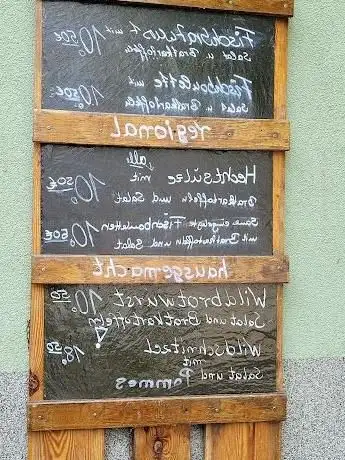 Fischbratwurst mit
Salat u. Bratkartoffeln
10,50€
Fischboulette mit
Salat u. Bratkartoffeln
10,50€
regional
alle
Hechtsülze mit
Bratkartoffeln und Salat
10,50€
Sauer eingelegte Fischbouletten
mit Bratkartoffeln und Salat
10,50€
hausgemacht
Wildbratwurst
Salat und Bratkartoffeln
10,50
Wildschnitzel
mit
Salat und Pommes
18,50